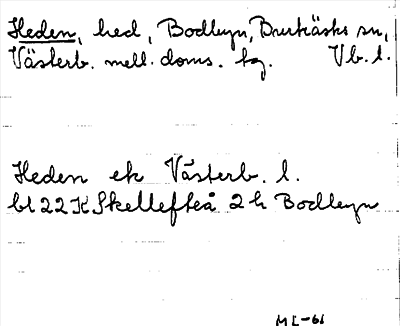 Heden, hed, Bodbyn, Burträsks sn,
Västerb. mell. doms. tg. Vb. l.
Heden ek Västerb. l.
bl 22K Skellefteå 2 h Bodbyn
ML-61